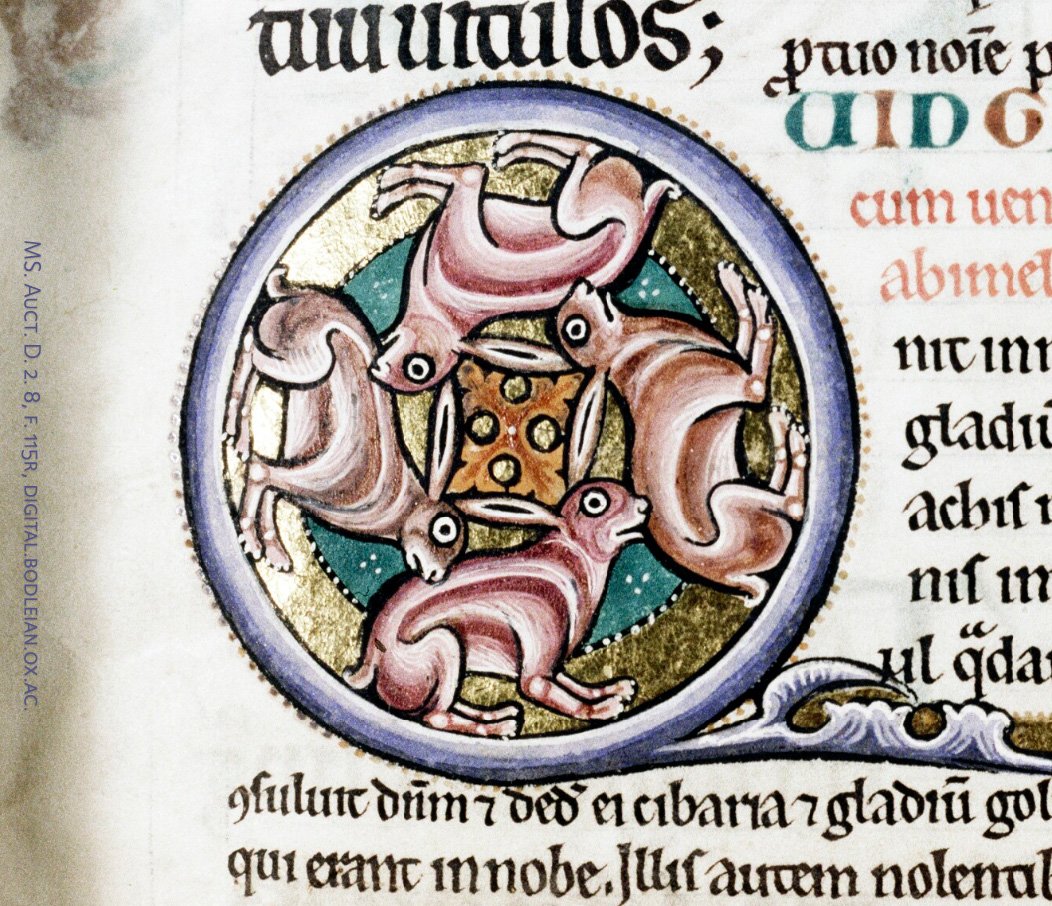 uitulos;
ꝑtuo noīe p
UID G
cum uen
abimel
nit inn
gladiū
achis
nis im
ul qͣdam
ꝯsuluit dn̄m ⁊ ded' ei cibaria ⁊ gladiū gol
qui erant in nobe. Illis autem nolentib
MS. AUCT. D. 2. 8, F. 115R, DIGITAL.BODLEIAN.OX.AC.